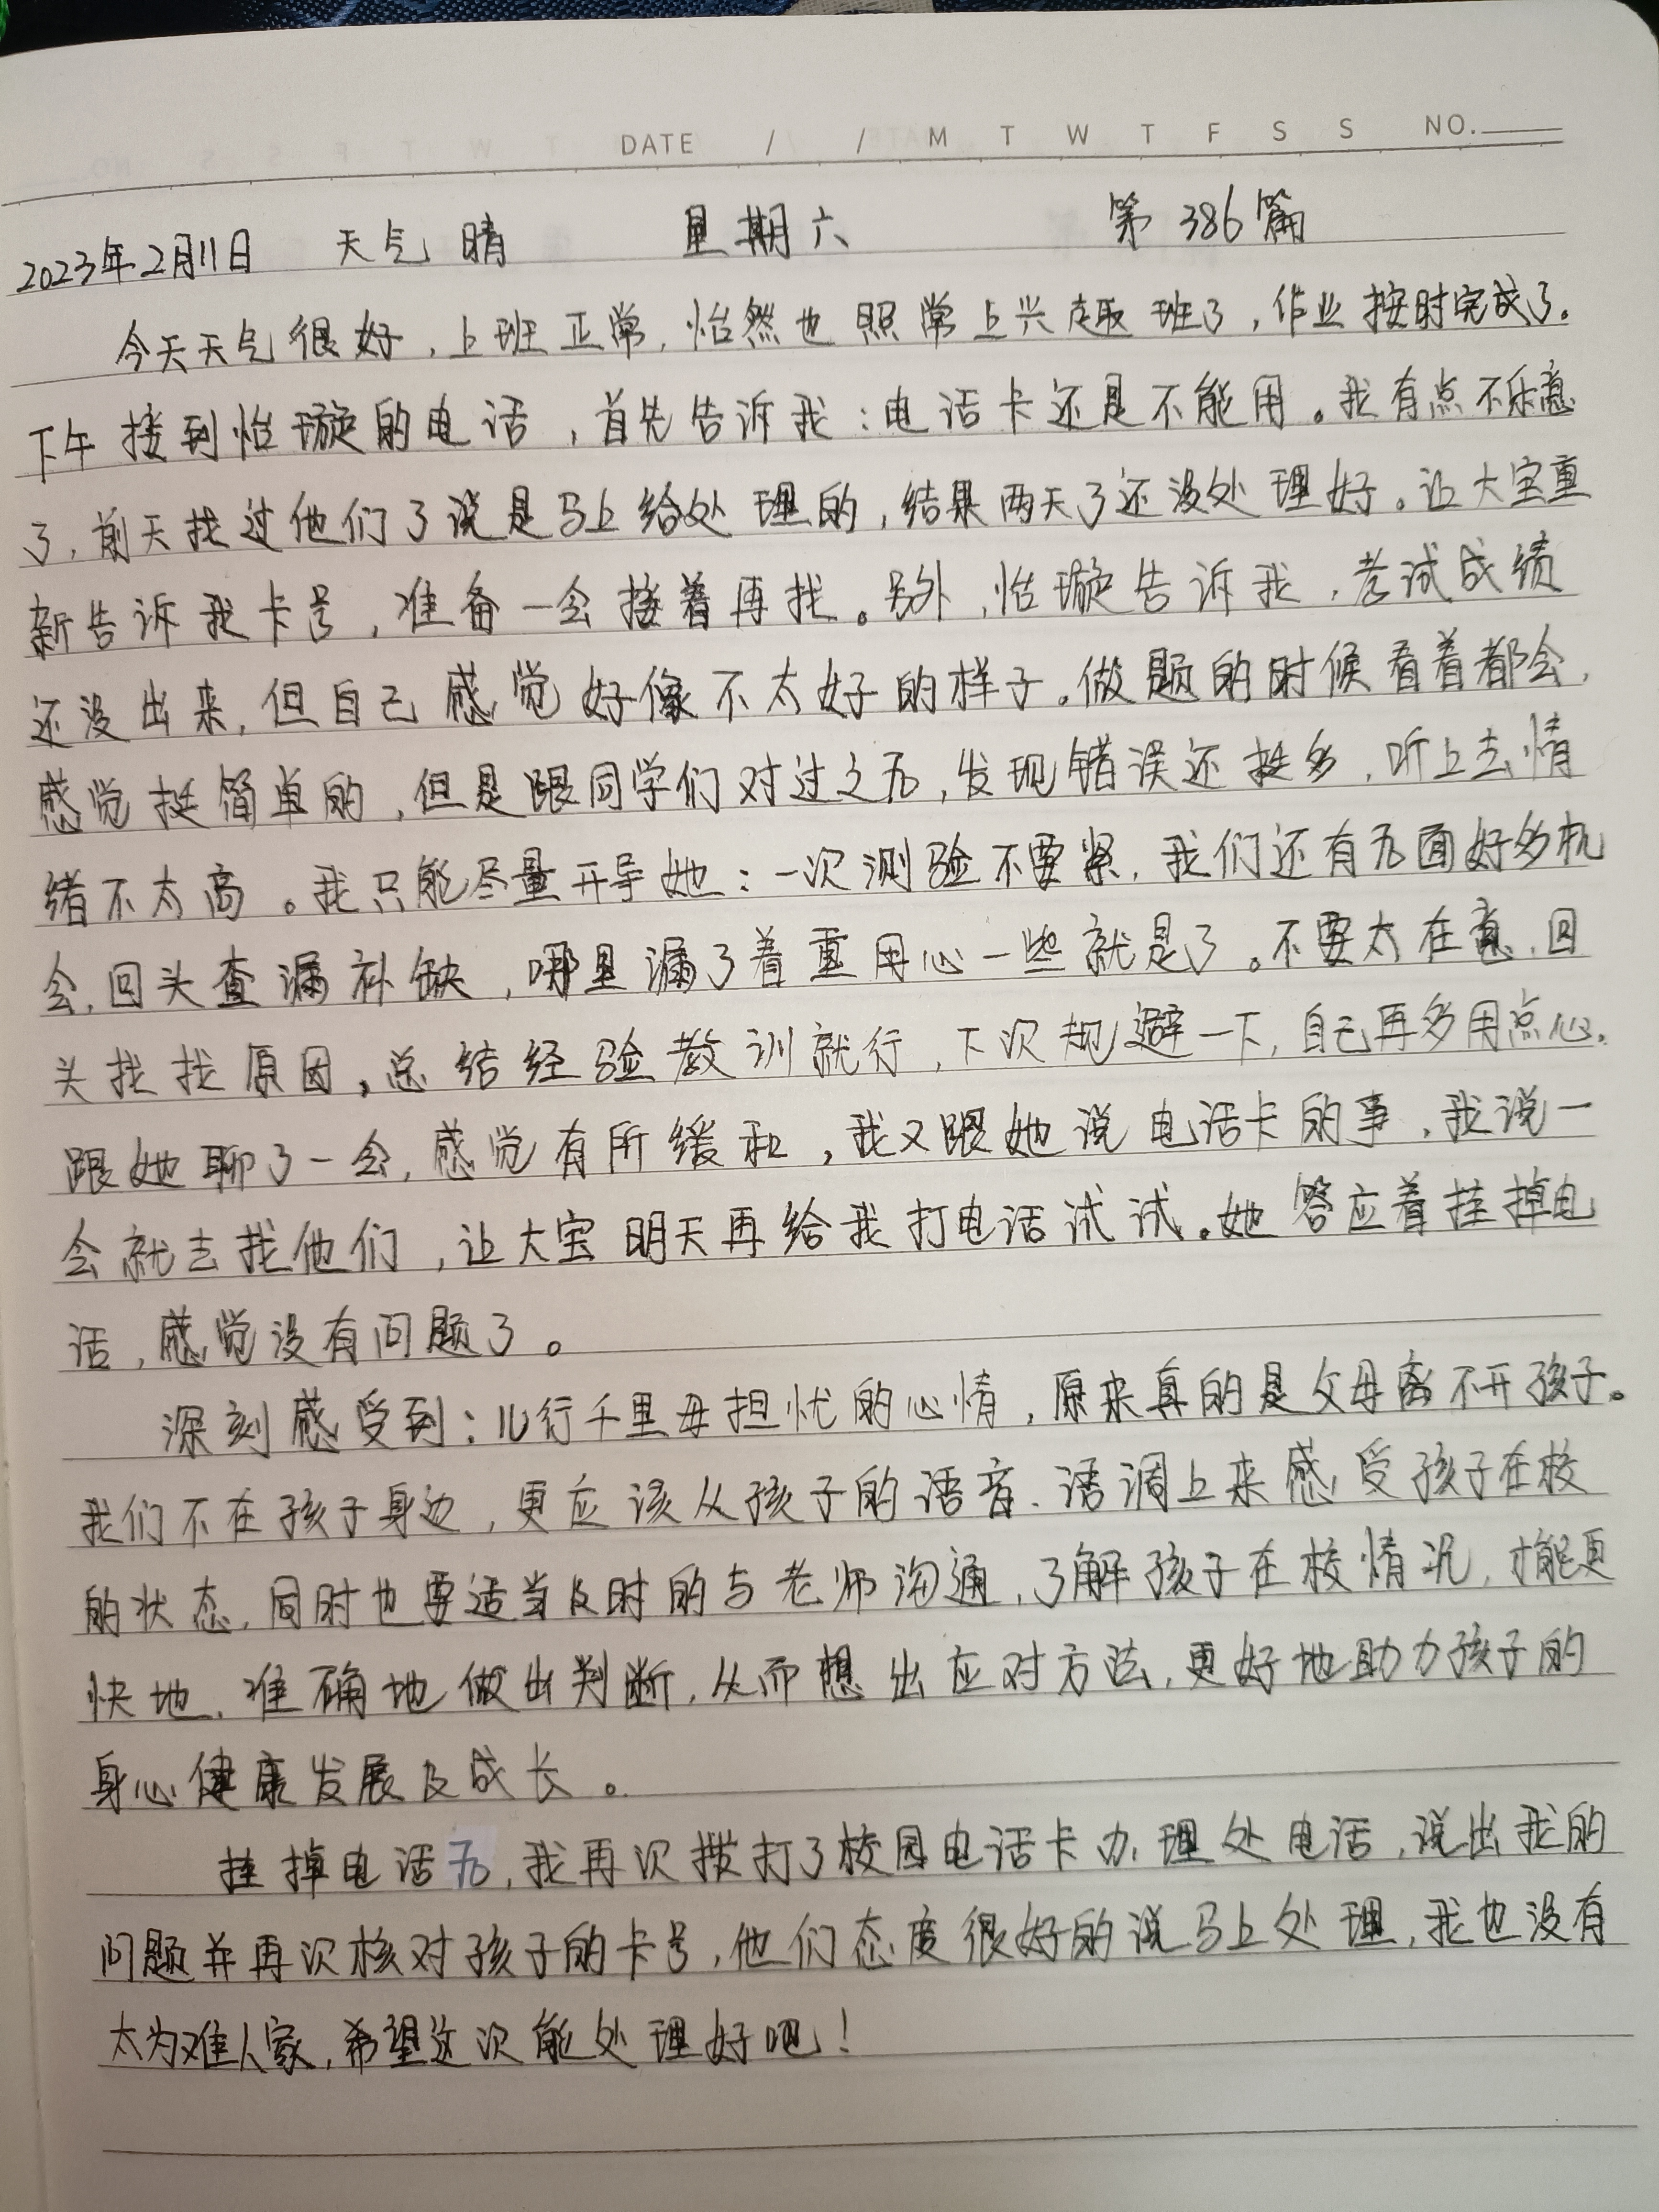 DATE / / M T W T F S S NO.
2023年2月11日 天气 晴 星期六 第 386 篇
今天天气很好，上班正常，怡然也照常上兴趣班了，作业按时完成了。
下午接到怡璇的电话，首先告诉我：电话卡还是不能用。我有点不乐意
了，前天找过他们了说是马上给处理的，结果两天了还没处理好。让大宝重
新告诉我卡号，准备一会接着再找。另外，怡璇告诉我，考试成绩
还没出来，但自己感觉好像不太好的样子。做题的时候看着都会，
感觉挺简单的，但是跟同学们对过之后，发现错误还挺多，听上去情
绪不太高。我只能尽量开导她：一次测验不要紧，我们还有后面好多机
会，回头查漏补缺，哪里漏了着重用心一些就是了。不要太在意，回
头找找原因，总结经验教训就行，下次规避一下，自己再多用点心。
跟她聊了一会，感觉有所缓和，我又跟她说电话卡的事，我说一
会就去找他们，让大宝明天再给我打电话试试。她答应着挂掉电
话，感觉没有问题了。
深刻感受到：儿行千里母担忧的心情，原来真的是父母离不开孩子。
我们不在孩子身边，更应该从孩子的语音、语调上来感受孩子在校
的状态，同时也要适当及时的与老师沟通，了解孩子在校情况，才能更
快地、准确地做出判断，从而想出应对方法，更好地助力孩子的
身心健康发展及成长。
挂掉电话后，我再次拨打了校园电话卡办理处电话，说出我的
问题并再次核对孩子的卡号，他们态度很好的说马上处理，我也没有
太为难人家，希望这次能处理好吧！